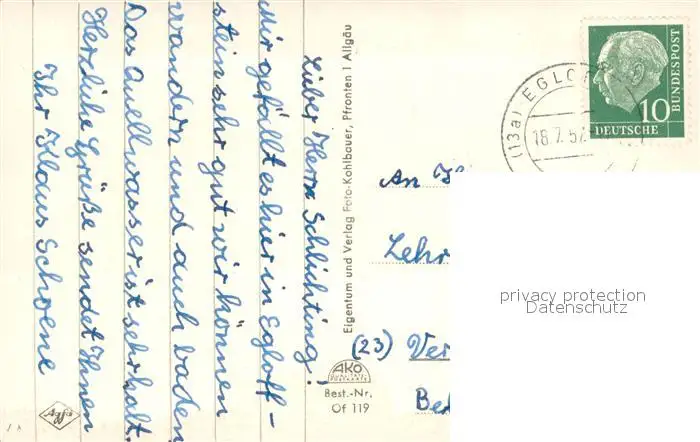 Lieber Herr Schlichting!
Mir gefällt es hier in Egloff-
stein sehr gut wir können
wandern und auch baden
Das Quellwasser ist sehr kalt.
Herzliche Grüße sendet Ihnen
Ihr Klaus Schoene
Eigentum und Verlag Foto-Kohlbauer, Pfronten 1 Allgäu
AKO
Best.-Nr.
Of 119
Agfa
(13a) EGLOF
18.7.57
10
DEUTSCHE
BUNDESPOST
An H
Lehr
(23) Ver
Be
privacy protection
Datenschutz